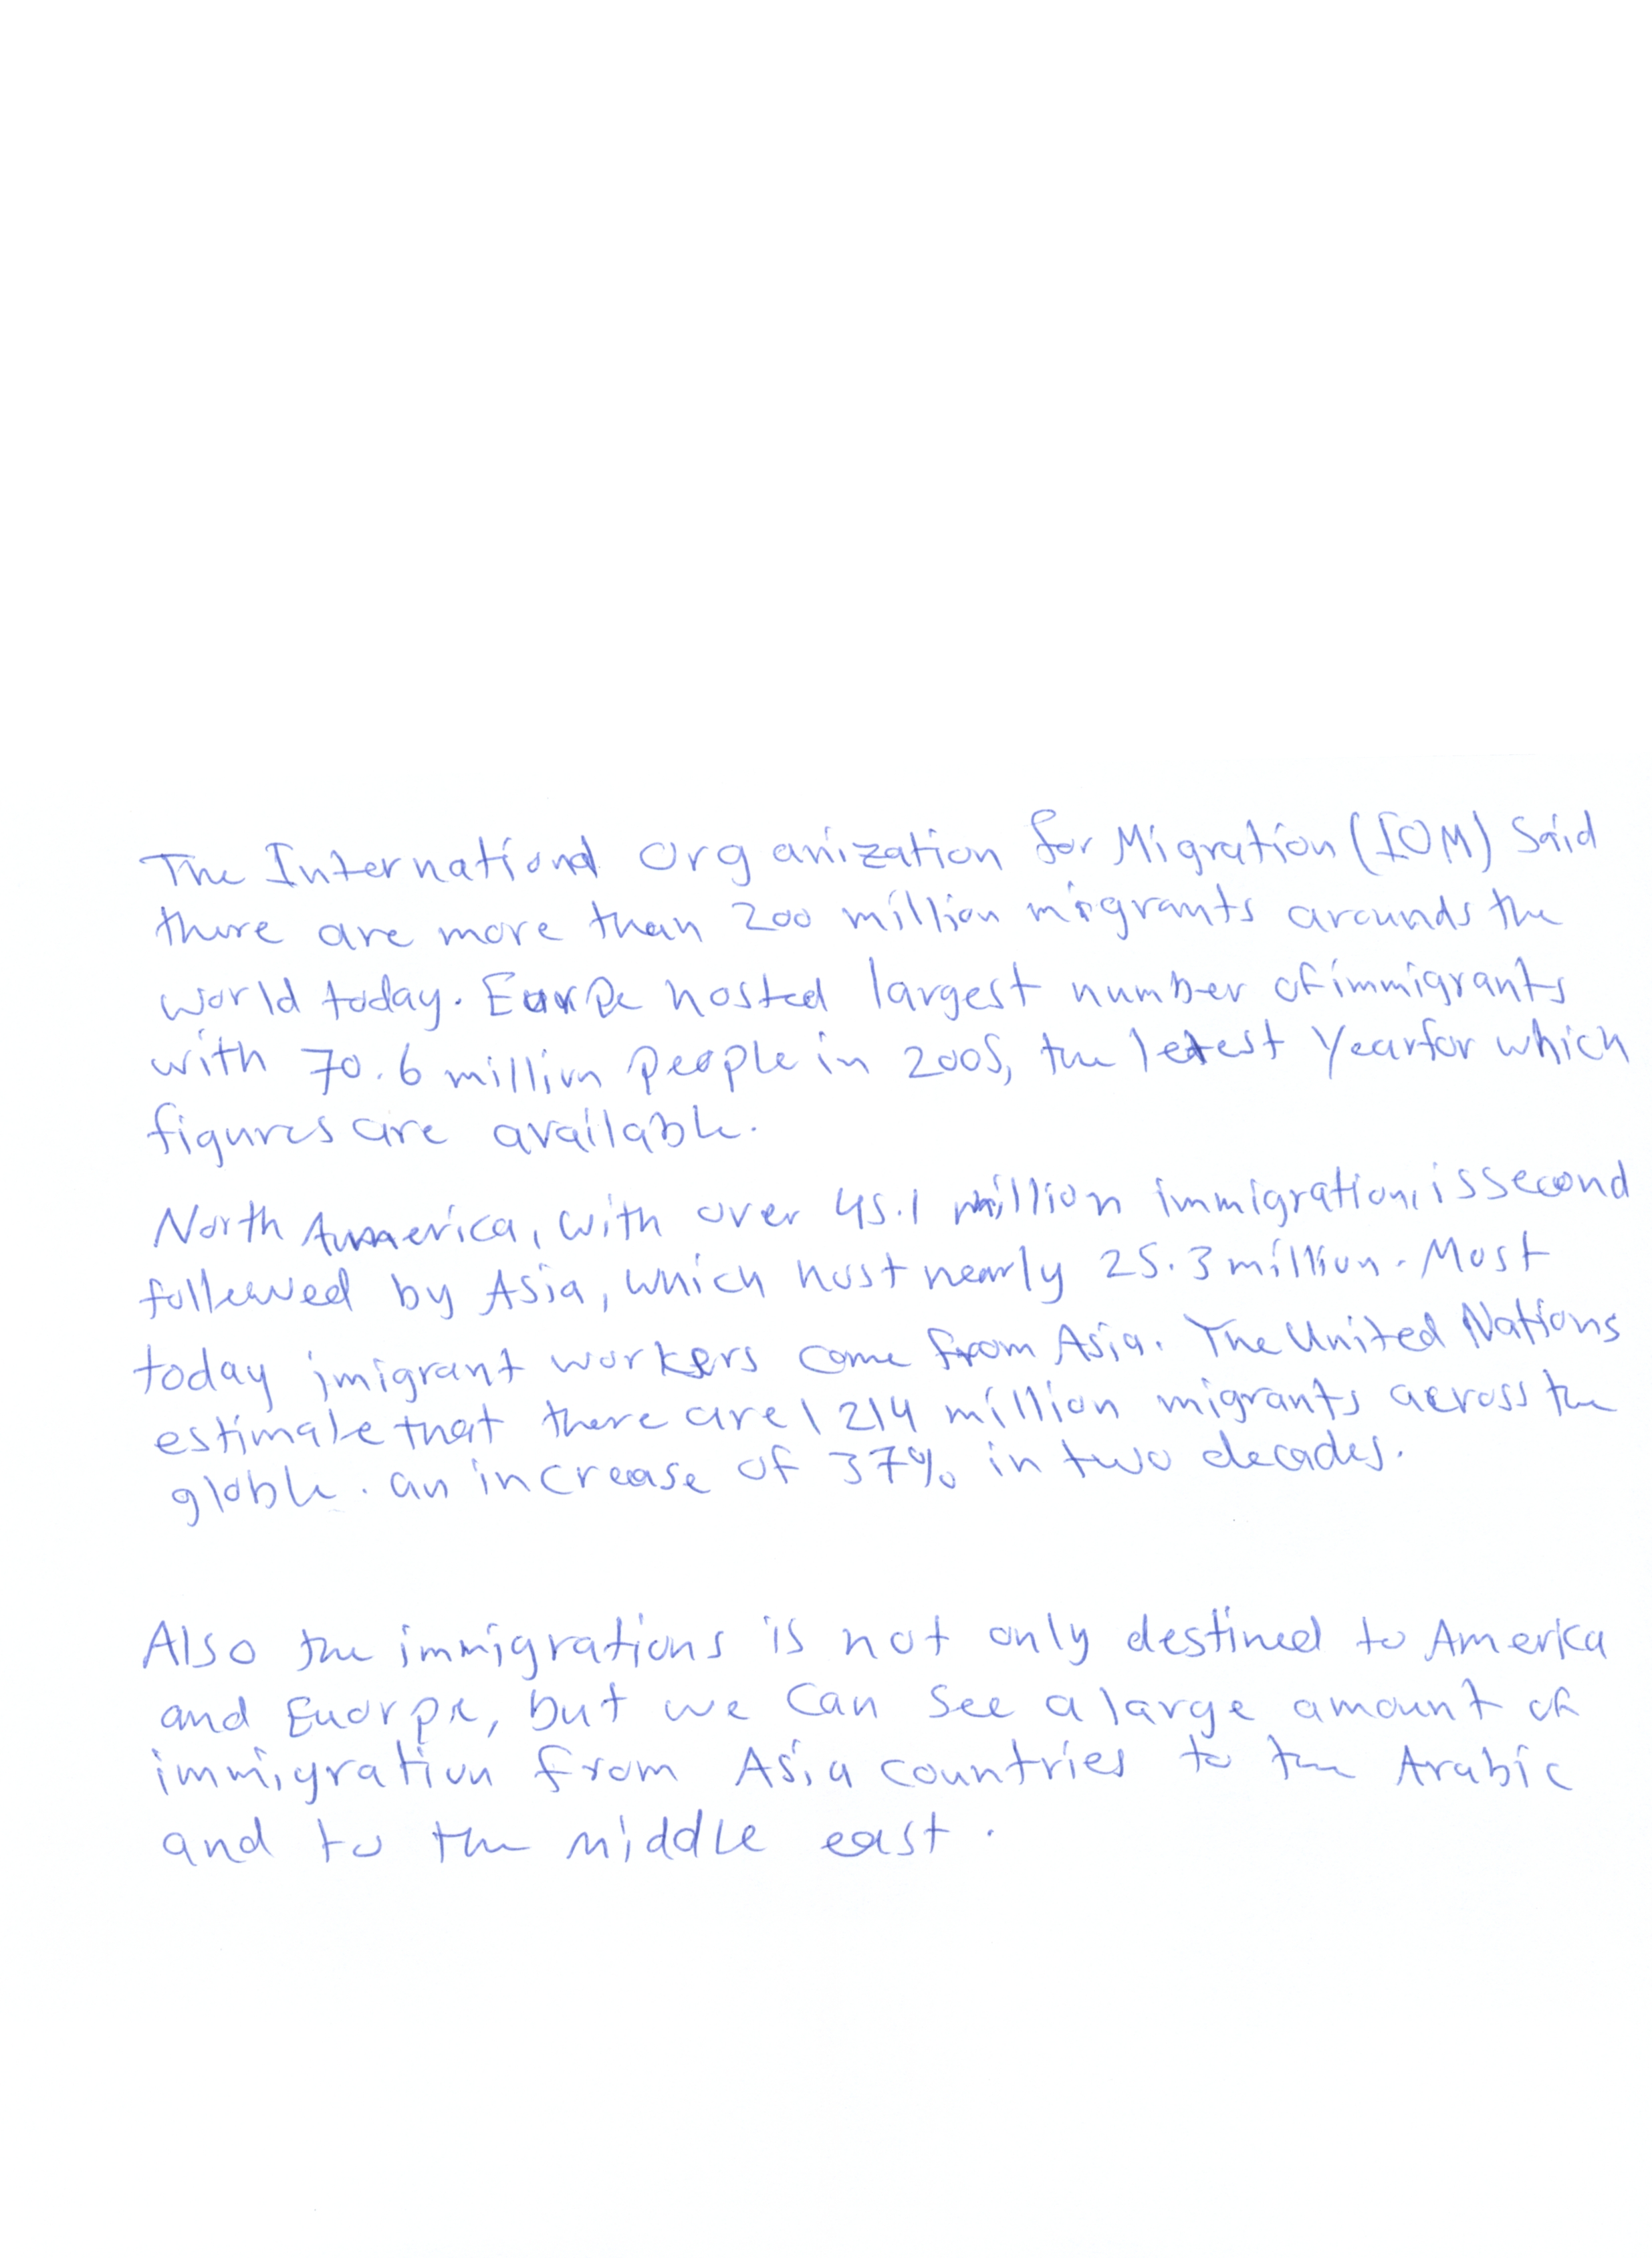 The International Organization for Migration (IOM) Said
there are more than 200 million migrants arounds the
world today. Eurpe hosted largest number of immigrants
with 70.6 million people in 2005, the letest year for which
figures are available.
North America, with over 45.1 million immigration, is second
followed by Asia, which host nearly 25.3 million. Most
today imigrant workers come from Asia. The United Nations
estimate that there are 214 million migrants across the
globle. an increase of 37% in two decades.
Also the immigrations is not only destined to America
and Euorpe, but we can see a large amount of
immigration from Asia countries to the Arabic
and to the middle east.